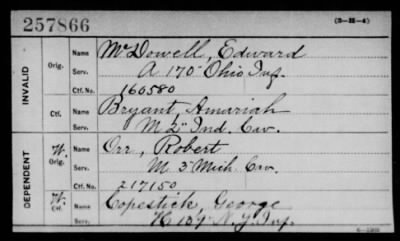 257866
(3-H-4)
INVALID
Orig.
Name McDowell, Edward
Serv. A 170" Ohio Inf.
Ctf. No. 160580
Ctf.
Name Bryant, Amariah
Serv. M 2" Ind. Cav.
DEPENDENT
W. Orig.
Name Orr, Robert
Serv. M 3" Mich. Cav.
Ctf. No. 217150
W. Ctf.
Name Copestick, George
Serv. K 134" N.Y. Inf.